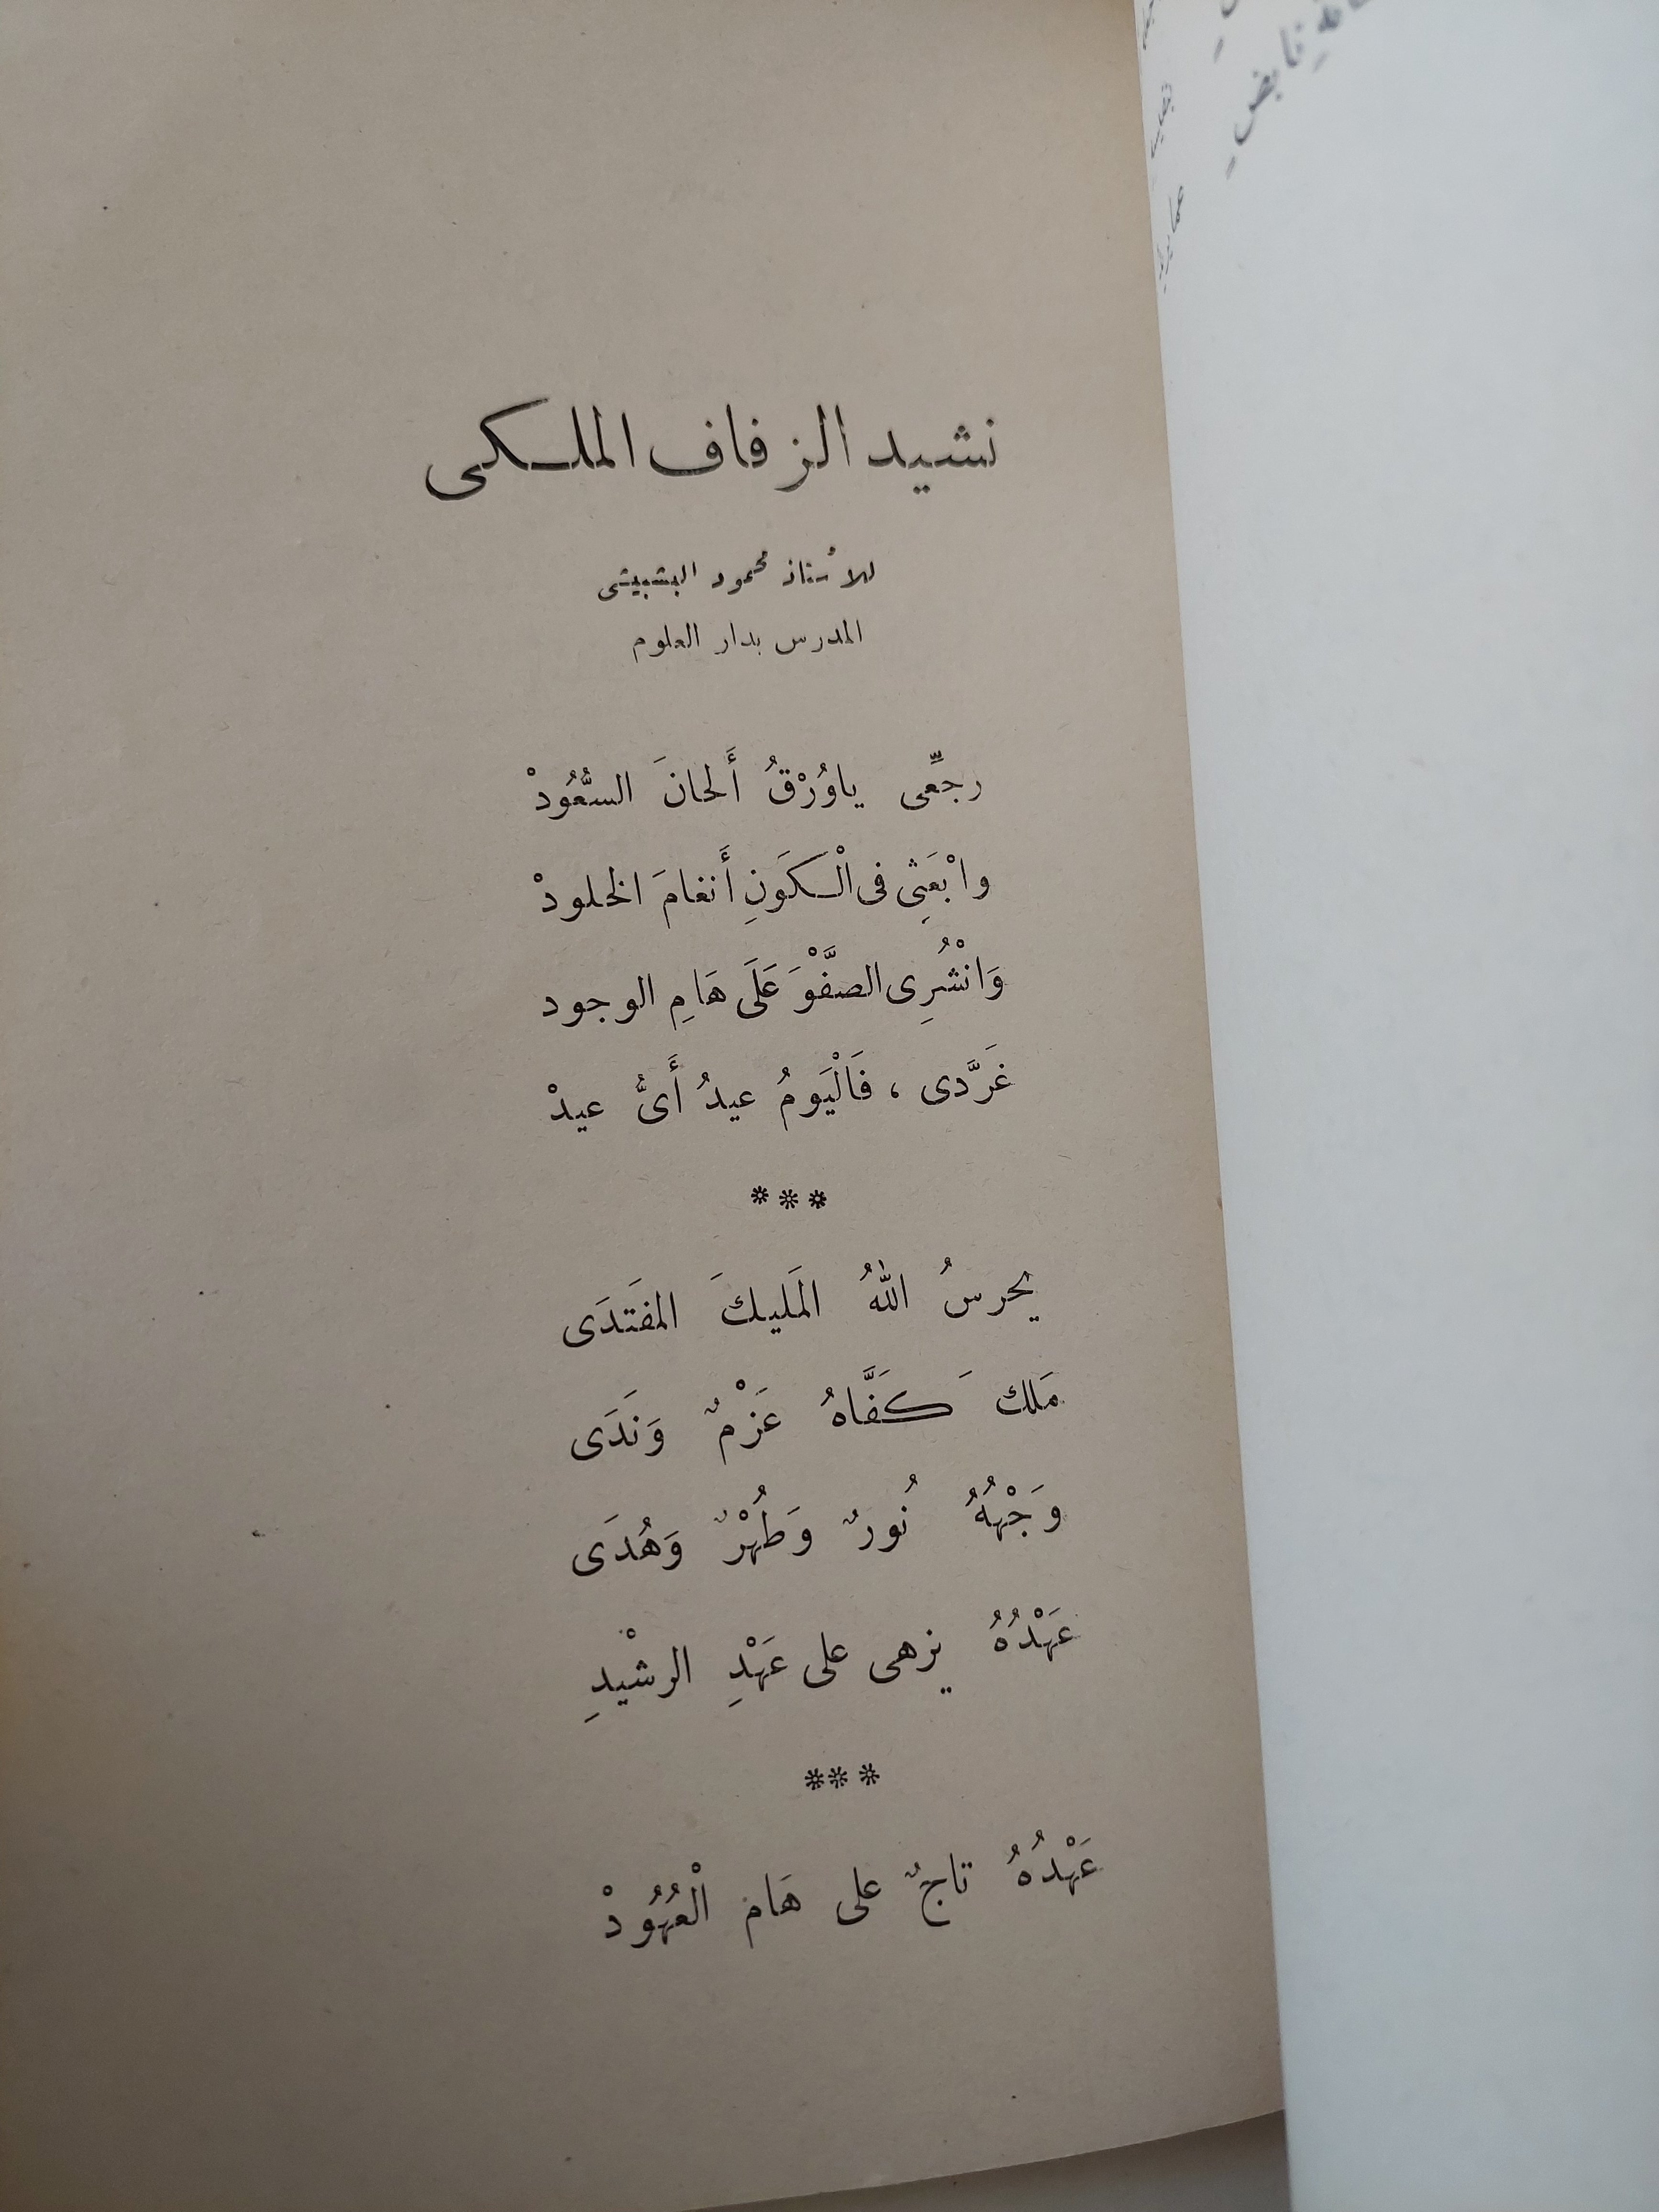 نشيد الزفاف الملكى
للأستاذ محمود البشبيشى
المدرس بدار العلوم
رجعِّى ياوُرْقُ أَلحانَ السُّعُودْ
وابْعَثِى فى الْكَونِ أَنغامَ الخلودْ
وَانْشُرِى الصفَّوْ عَلَى هَامِ الوجود
غَرَّدى ، فَالْيَومُ عيدُ أَىُّ عيدْ
***
يحرسُ اللهُ المَليكَ المفَتدَى
مَلك كَفَّاهُ عَزْمٌ وَنَدَى
وَجْهُهُ نُورٌ وَطُهْرٌ وَهُدَى
عَهْدُهُ يزهى على عَهْدِ الرشْيدِ
***
عَهْدُهُ تاجٌ على هَام الْعُهُودْ
نابضٍ